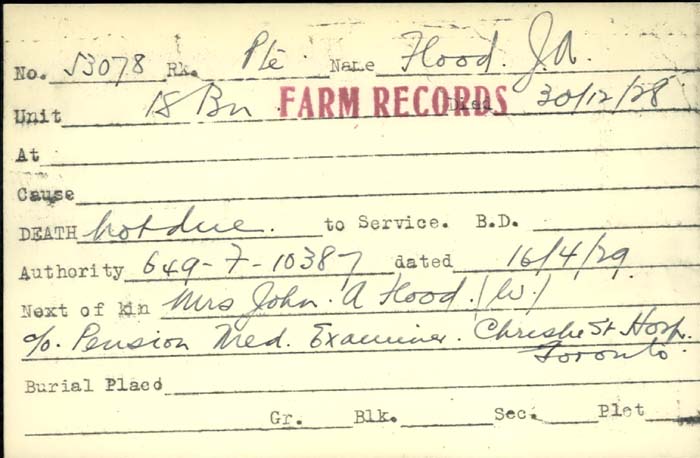 No. 53078 Rk. Pte Name Flood. J.A.
Unit 18 Bn FARM RECORDS Died 30/12/28
At
Cause
DEATH Not due. to Service. B.D.
Authority 649-7-10387 dated 16/4/29
Next of kin Mrs John. A Flood. (W.)
c/o. Pension Med. Examiner. Christie St Hosp.
Toronto.
Burial Placed
Gr. Blk. Sec. Plot